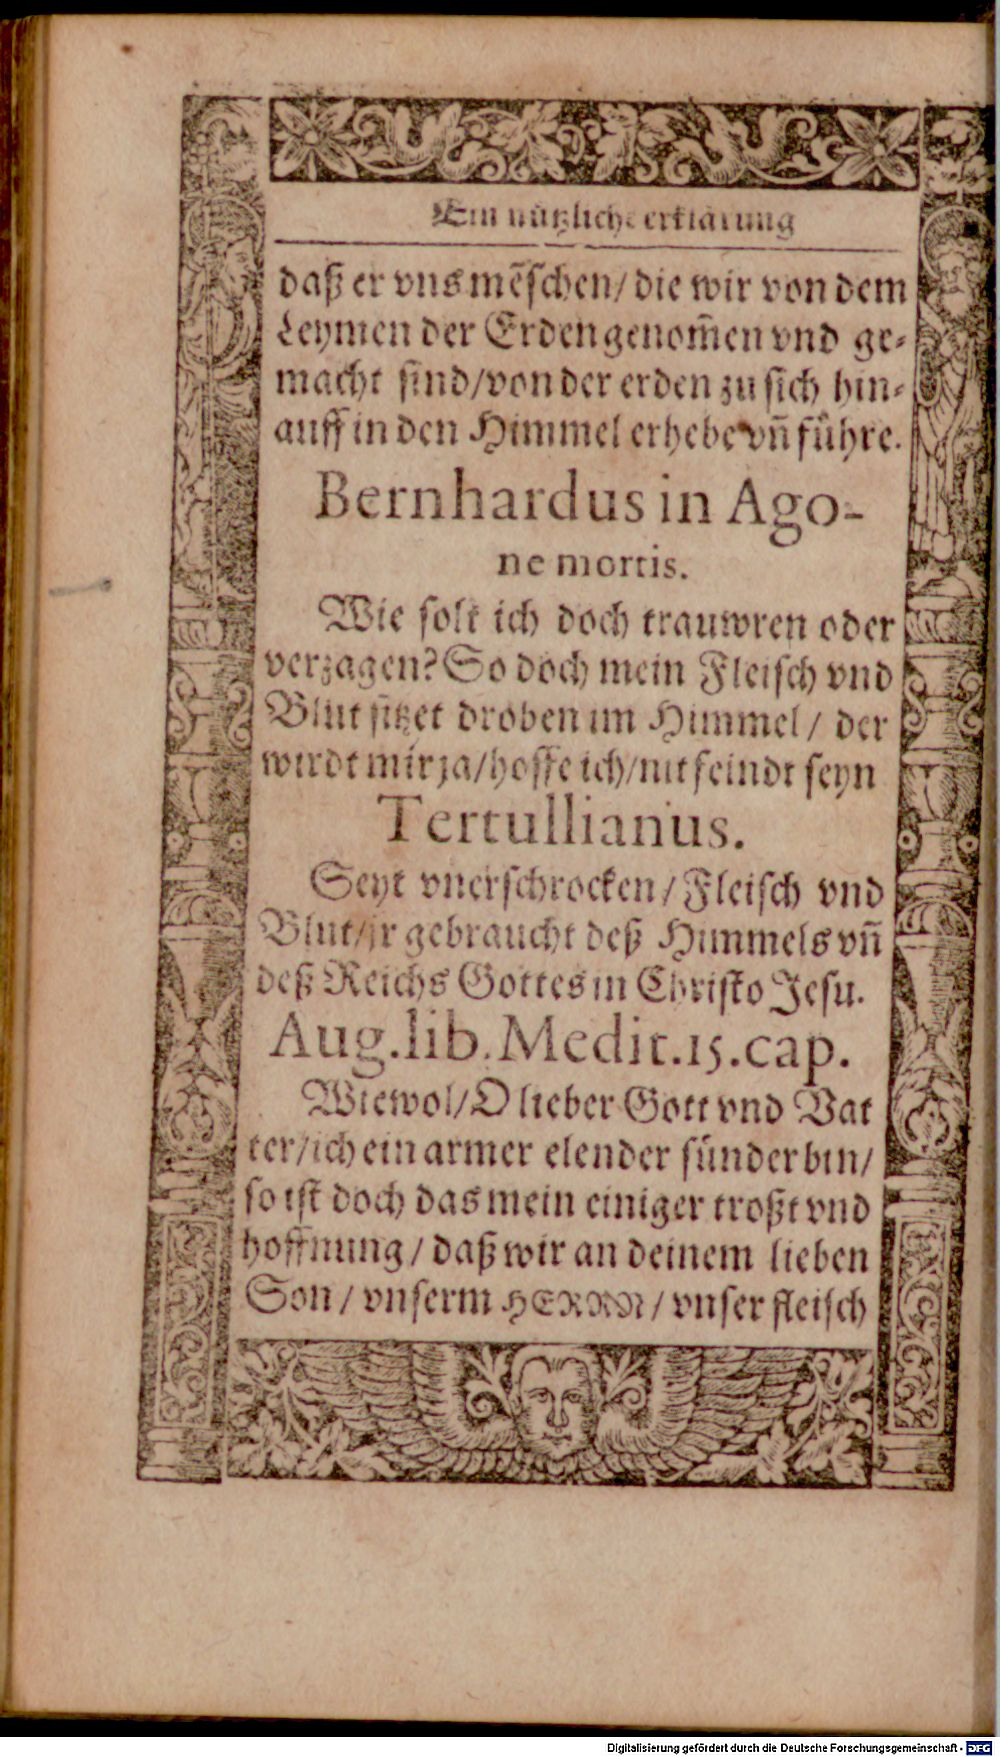 Ein nützliche erklärung
daß er vns mẽschen/ die wir von dem
Leymen der Erden genom̃en vnd ge-
macht sind/ von der erden zu sich hin-
auff in den Himmel erhebe vñ führe.
Bernhardus in Ago-
ne mortis.
Wie solt ich doch trauwren oder
verzagen? So doch mein Fleisch vnd
Blut sitzet droben im Himmel/ der
wirdt mir ja/ hoffe ich/ nit feindt seyn
Tertullianus.
Seyt vnerschrocken/ Fleisch vnd
Blut/ jr gebraucht deß Himmels vñ
deß Reichs Gottes in Christo Jesu.
Aug. lib. Medit. 15. cap.
Wiewol/ O lieber Gott vnd Vat
ter/ ich ein armer elender sünder bin/
so ist doch das mein einiger troßt vnd
hoffnung/ daß wir an deinem lieben
Son/ vnserm HERRN/ vnser fleisch
Digitalisierung gefördert durch die Deutsche Forschungsgemeinschaft - DFG